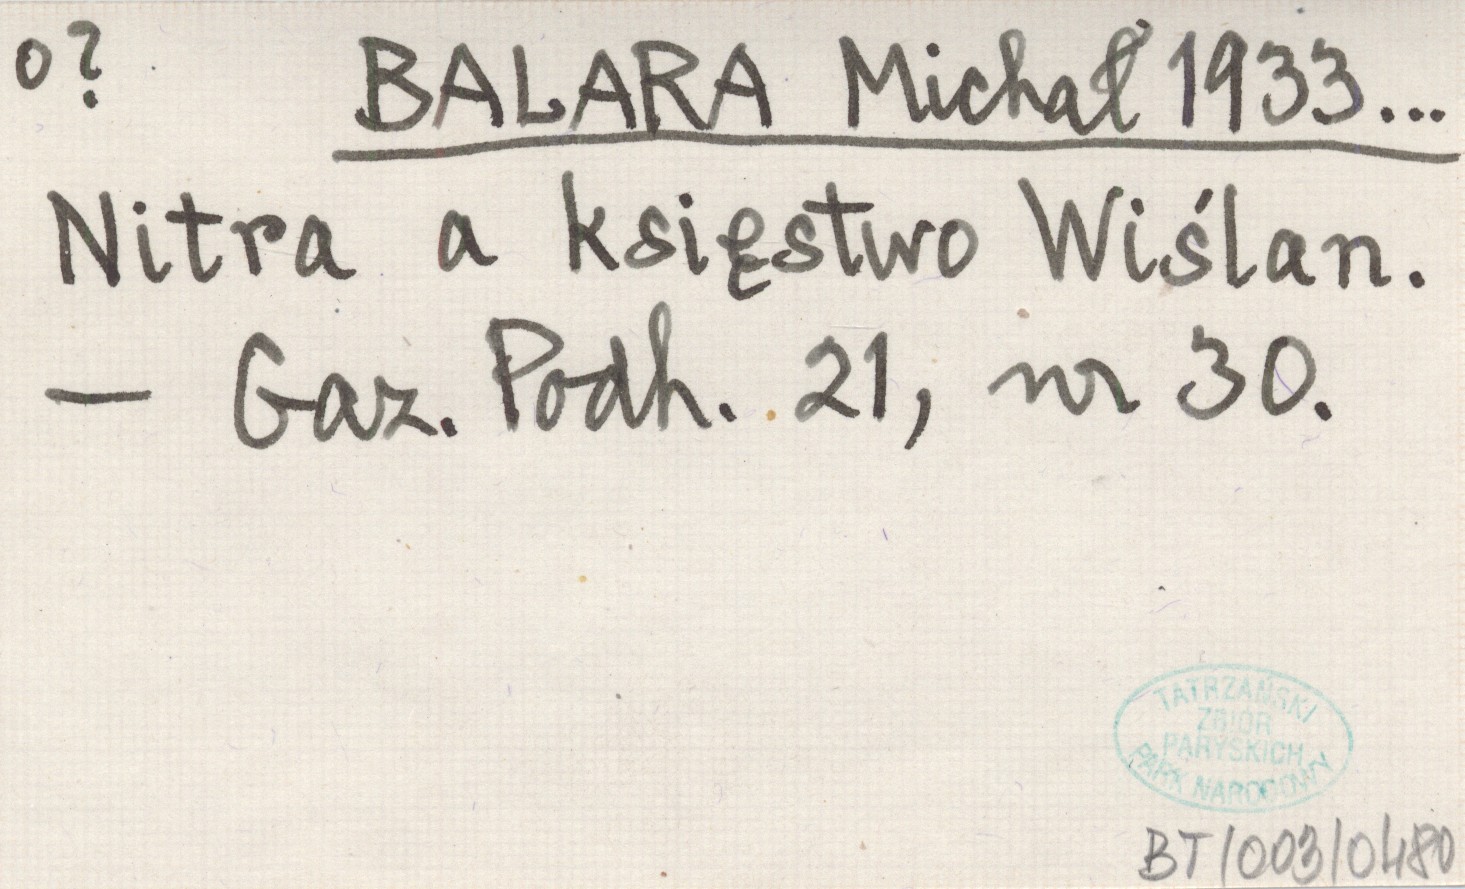 o? BALARA Michał 1933...
Nitra a księstwo Wiślan.
— Gaz. Podh. 21, nr 30.
TATRZAŃSKI
ZBIÓR
PARYSKICH
PARK NARODOWY
BT/003/0480